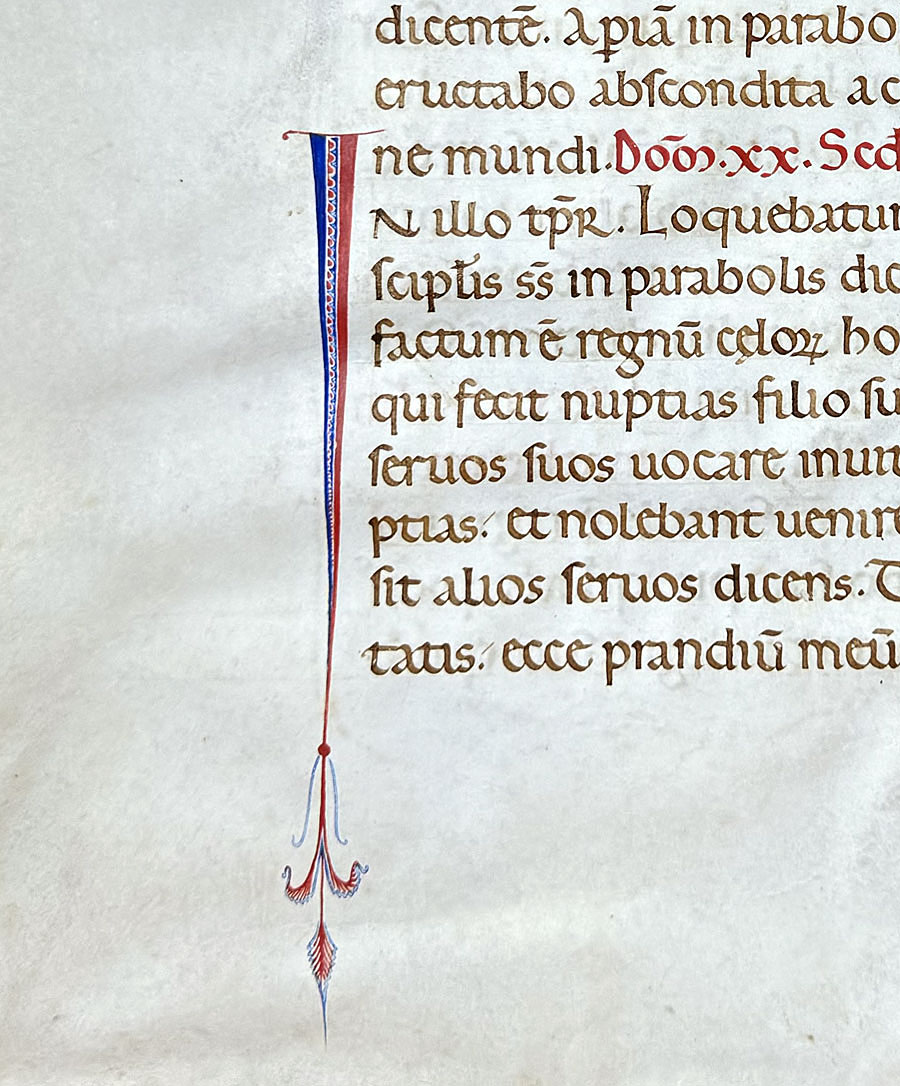 dicentē. Apiā in parabo
eructabo abſcondita a c
ne mundi. Dōō. xx. Scd
IN illo tp̄R. Loquebatur
ſciplis s̄s in parabolis dic
factum ē regnū cęloꝝ ho
qui fecit nuptias filio ſu
ſeruos ſuos uocare inuit
ptias. et nolebant uenire
ſit alios ſeruos dicens. T
tatis. ecce prandiū meū